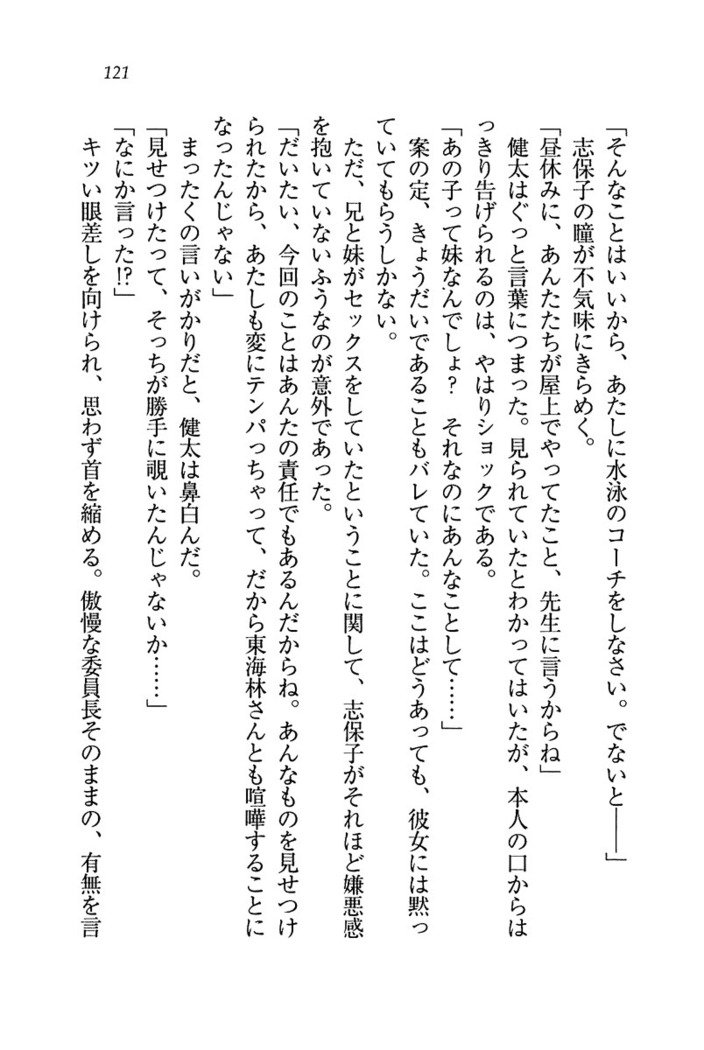 121
「そんなことはいいから、あたしに水泳のコーチをしなさい。でないと――」
志保子の瞳が不気味にきらめく。
「昼休みに、あんたたちが屋上でやってたこと、先生に言うからね」
健太はぐっと言葉につまった。見られていたとわかってはいたが、本人の口からは
っきり告げられるのは、やはりショックである。
「あの子って妹なんでしょ?　それなのにあんなことして……」
案の定、きょうだいであることもバレていた。ここはどうあっても、彼女には黙っ
ていてもらうしかない。
ただ、兄と妹がセックスをしていたということに関して、志保子がそれほど嫌悪感
を抱いていないふうなのが意外であった。
「だいたい、今回のことはあんたの責任でもあるんだからね。あんなものを見せつけ
られたから、あたしも変にテンパっちゃって、だから東海林さんとも喧嘩することに
なったんじゃない」
まったくの言いがかりだと、健太は鼻白んだ。
「見せつけたって、そっちが勝手に覗いたんじゃないか……」
「なにか言った!?」
キツい眼差しを向けられ、思わず首を縮める。傲慢な委員長そのままの、有無を言